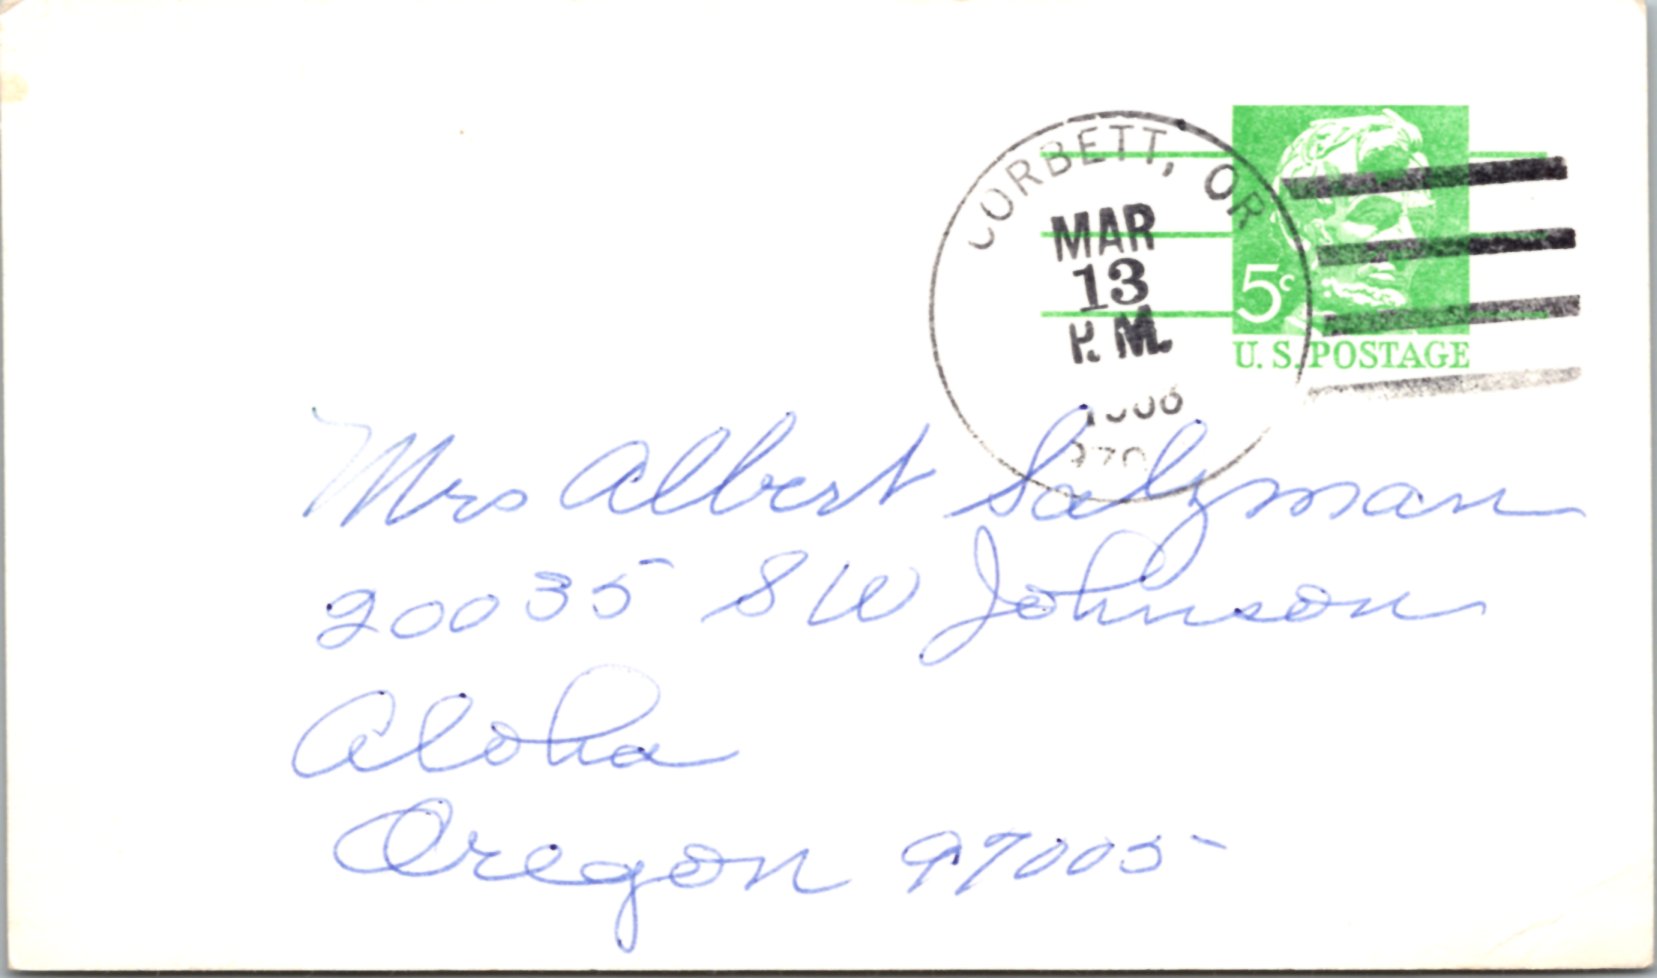 CORBETT, OR
MAR
13
P.M.
5c
U.S. POSTAGE
Mrs Albert Salzman
20035 SW Johnson
Aloha
Oregon 97005